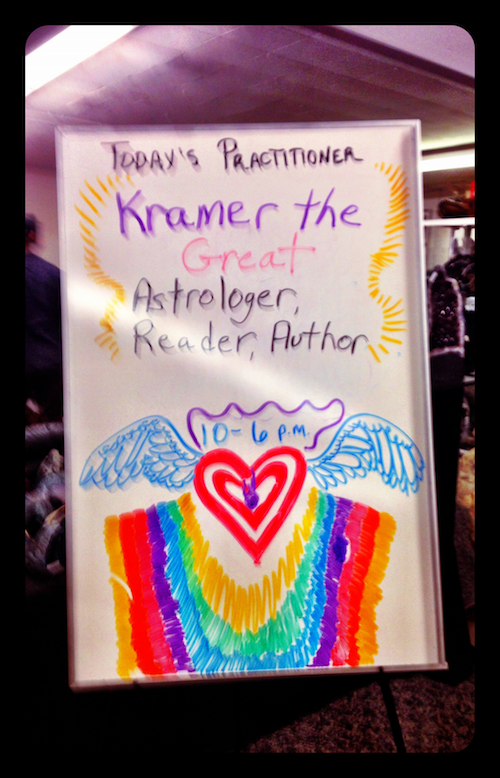 TODAY'S PRACTITIONER
Kramer the
Great
Astrologer,
Reader, Author
10-6 p.m.